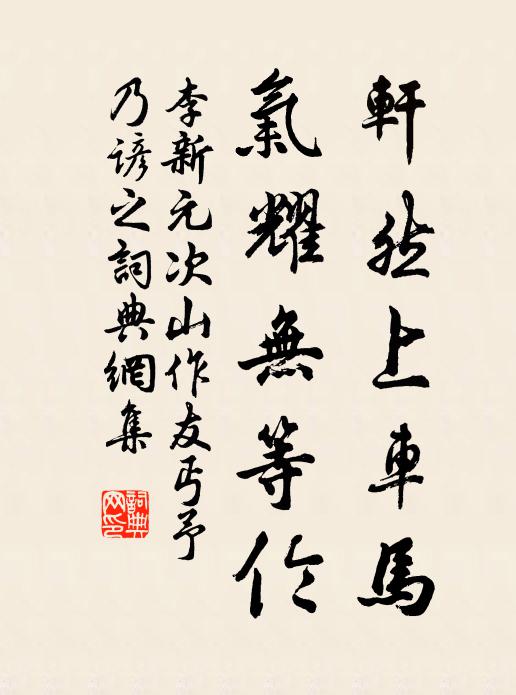 軒然上車馬
氣耀無等倫
李新元次山作友丐予
乃諺之詞典網集
詞典
网印